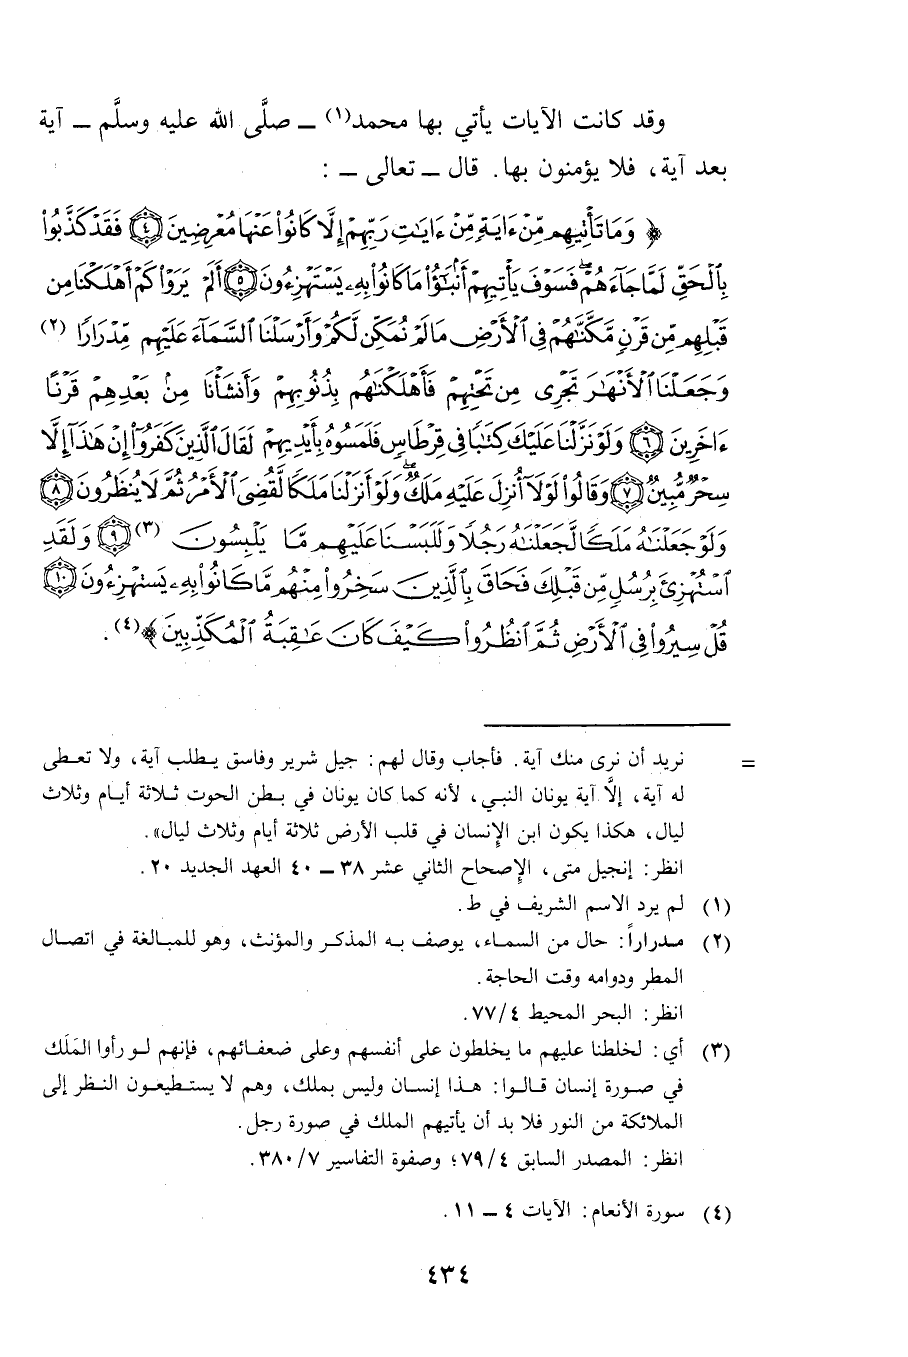 وقد كانت الآيات يأتي بها محمد(١) ــ صلَّى الله عليه وسلَّم ــ آية
بعد آية، فلا يؤمنون بها. قال ــ تعالى ــ :
﴿ وَمَا تَأْتِيهِم مِّنْ ءَايَةٍ مِّنْ ءَايَٰتِ رَبِّهِمْ إِلَّا كَانُوا۟ عَنْهَا مُعْرِضِينَ ۝٤ فَقَدْ كَذَّبُوا۟
بِٱلْحَقِّ لَمَّا جَآءَهُمْ ۖ فَسَوْفَ يَأْتِيهِمْ أَنۢبَٰٓؤُا۟ مَا كَانُوا۟ بِهِۦ يَسْتَهْزِءُونَ ۝٥ أَلَمْ يَرَوْا۟ كَمْ أَهْلَكْنَا مِن
قَبْلِهِم مِّن قَرْنٍ مَّكَّنَّٰهُمْ فِى ٱلْأَرْضِ مَا لَمْ نُمَكِّن لَّكُمْ وَأَرْسَلْنَا ٱلسَّمَآءَ عَلَيْهِم مِّدْرَارًا (٢)
وَجَعَلْنَا ٱلْأَنْهَٰرَ تَجْرِى مِن تَحْتِهِمْ فَأَهْلَكْنَٰهُم بِذُنُوبِهِمْ وَأَنشَأْنَا مِنۢ بَعْدِهِمْ قَرْنًا
ءَاخَرِينَ ۝٦ وَلَوْ نَزَّلْنَا عَلَيْكَ كِتَٰبًا فِى قِرْطَاسٍ فَلَمَسُوهُ بِأَيْدِيهِمْ لَقَالَ ٱلَّذِينَ كَفَرُوٓا۟ إِنْ هَٰذَآ إِلَّا
سِحْرٌ مُّبِينٌ ۝٧ وَقَالُوا۟ لَوْلَآ أُنزِلَ عَلَيْهِ مَلَكٌ ۖ وَلَوْ أَنزَلْنَا مَلَكًا لَّقُضِىَ ٱلْأَمْرُ ثُمَّ لَا يُنظَرُونَ ۝٨
وَلَوْ جَعَلْنَٰهُ مَلَكًا لَّجَعَلْنَٰهُ رَجُلًا وَلَلَبَسْنَا عَلَيْهِم مَّا يَلْبِسُونَ (٣) ۝٩ وَلَقَدِ
ٱسْتُهْزِئَ بِرُسُلٍ مِّن قَبْلِكَ فَحَاقَ بِٱلَّذِينَ سَخِرُوا۟ مِنْهُم مَّا كَانُوا۟ بِهِۦ يَسْتَهْزِءُونَ ۝١٠
قُلْ سِيرُوا۟ فِى ٱلْأَرْضِ ثُمَّ ٱنظُرُوا۟ كَيْفَ كَانَ عَٰقِبَةُ ٱلْمُكَذِّبِينَ ﴾(٤).
= نريد أن نرى منك آية. فأجاب وقال لهم: جيل شرير وفاسق يطلب آية، ولا تعطى
له آية، إلَّا آية يونان النبي، لأنه كما كان يونان في بطن الحوت ثلاثة أيام وثلاث
ليال، هكذا يكون ابن الإنسان في قلب الأرض ثلاثة أيام وثلاث ليال».
انظر: إنجيل متى، الإصحاح الثاني عشر ٣٨ ــ ٤٠ العهد الجديد ٢٠.
(١) لم يرد الاسم الشريف في ط.
(٢) مدراراً: حال من السماء، يوصف به المذكر والمؤنث، وهو للمبالغة في اتصال
المطر ودوامه وقت الحاجة.
انظر: البحر المحيط ٧٧/٤.
(٣) أي: لخلطنا عليهم ما يخلطون على أنفسهم وعلى ضعفائهم، فإنهم لو رأوا المَلَك
في صورة إنسان قالوا: هذا إنسان وليس بملك، وهم لا يستطيعون النظر إلى
الملائكة من النور فلا بد أن يأتيهم الملك في صورة رجل.
انظر: المصدر السابق ٧٩/٤؛ وصفوة التفاسير ٣٨٠/٧.
(٤) سورة الأنعام: الآيات ٤ ــ ١١.
٤٣٤